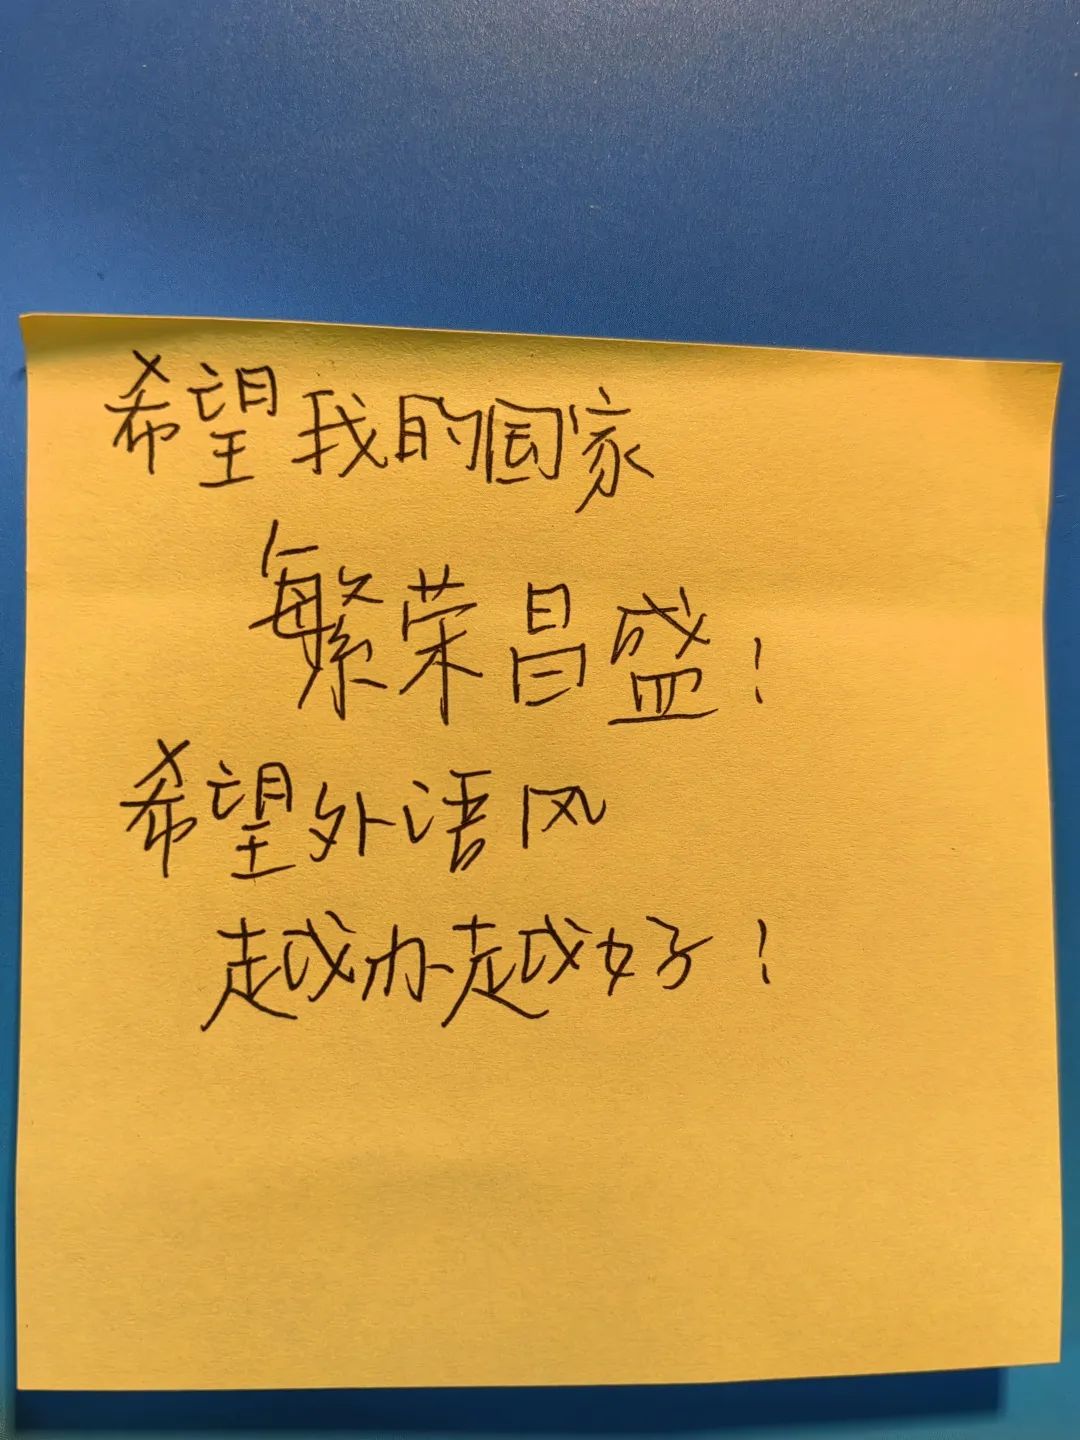 希望我的国家
繁荣昌盛！
希望外语风
越办越好！